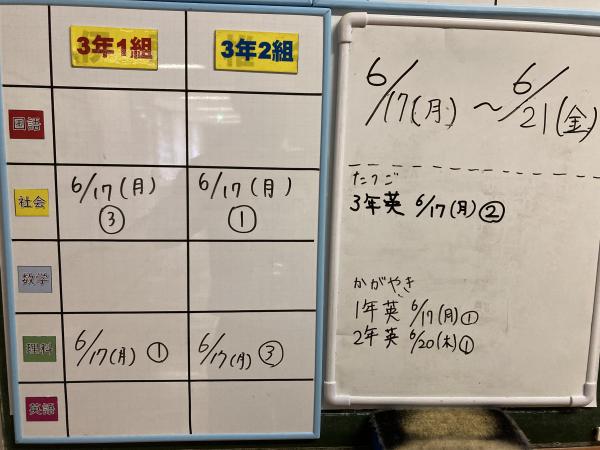 3年1組 3年2組
国語
社会 6/17(月) ③ 6/17(月) ①
数学
理科 6/17(月) ① 6/17(月) ③
英語
6/17(月)～6/21(金)
たんご
3年英 6/17(月)②
かがやき
1年英 6/17(月)①
2年英 6/20(木)①